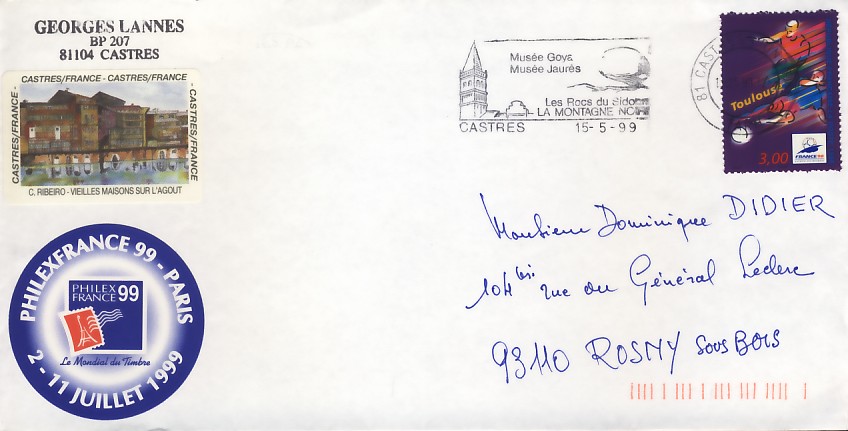 GEORGES LANNES
BP 207
81104 CASTRES
CASTRES/FRANCE - CASTRES/FRANCE
CASTRES/FRANCE -
- CASTRES/FRANCE
C. RIBEIRO - VIEILLES MAISONS SUR L'AGOUT
PHILEXFRANCE 99 - PARIS
PHILEX
FRANCE 99
Le Mondial du Timbre
2 - 11 JUILLET 1999
Musée Goya
Musée Jaurès
Les Rocs du Sidobre
LA MONTAGNE NOIRE
CASTRES 15-5-99
81 CAST
Toulouse
3,00
FRANCE 98
Monsieur Dominique DIDIER
104 bis rue du Général Leclerc
93110 ROSNY SOUS BOIS